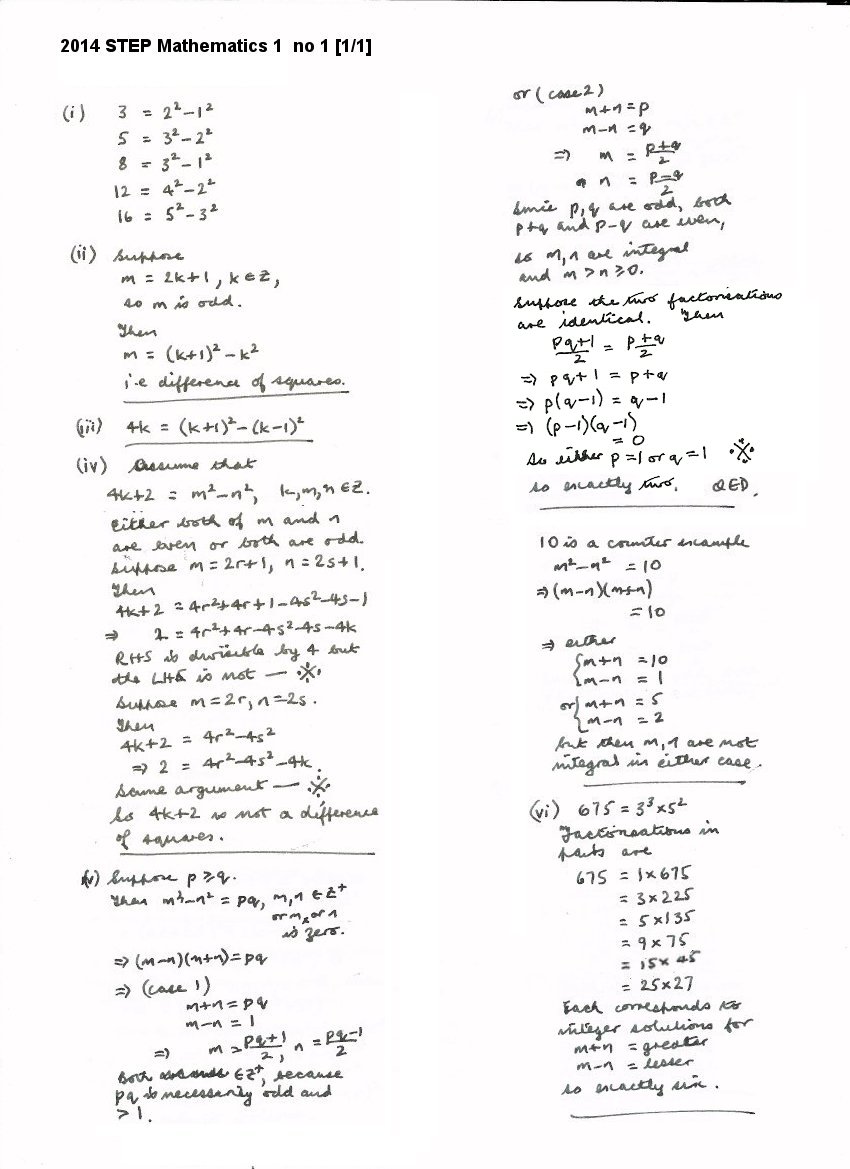 2014 STEP Mathematics 1 no 1 [1/1]
(i) 3 = 2²-1²
5 = 3²-2²
8 = 3²-1²
12 = 4²-2²
16 = 5²-3²
(ii) Suppose
m = 2k+1, k∈Z,
so m is odd.
Then
m = (k+1)²-k²
i.e difference of squares.
(iii) 4k = (k+1)²-(k-1)²
(iv) Assume that
4k+2 = m²-n², k,m,n∈Z.
Either both of m and n
are even or both are odd.
Suppose m=2r+1, n=2s+1.
Then
4k+2 = 4r²+4r+1-4s²-4s-1
⇒ 2 = 4r²+4r-4s²-4s-4k
RHS is divisible by 4 but
the LHS is not — ※
Suppose m=2r, n=2s.
Then
4k+2 = 4r²-4s²
⇒ 2 = 4r²-4s²-4k.
Same argument — ※
So 4k+2 is not a difference
of squares.
(v) Suppose p⩾q.
Then m²-n² = pq, m,n∈Z⁺
or m, or n
is zero.
⇒ (m-n)(m+n)=pq
⇒ (case 1)
m+n=pq
m-n = 1
⇒ m = (pq+1)/2, n = (pq-1)/2
Both ∈Z⁺, because
pq is necessarily odd and
>1.
or (case 2)
m+n=p
m-n=q
⇒ m = (p+q)/2
n = (p-q)/2
Since p,q are odd, both
p+q and p-q are even,
so m,n are integral
and m>n⩾0.
Suppose the two factorisations
are identical. Then
(pq+1)/2 = (p+q)/2
⇒ pq+1 = p+q
⇒ p(q-1) = q-1
⇒ (p-1)(q-1)
= 0
So either p=1 or q=1 ※
so exactly two. QED.
10 is a counter example
m²-n² = 10
⇒ (m-n)(m+n)
= 10
⇒ either
{m+n = 10
m-n = 1
or {m+n = 5
m-n = 2
but then m,n are not
integral in either case.
(vi) 675 = 3³×5²
Factorisations in
pairs are
675 = 1×675
= 3×225
= 5×135
= 9×75
= 15×45
= 25×27
Each corresponds to
integer solutions for
m+n = greater
m-n = lesser
so exactly six.